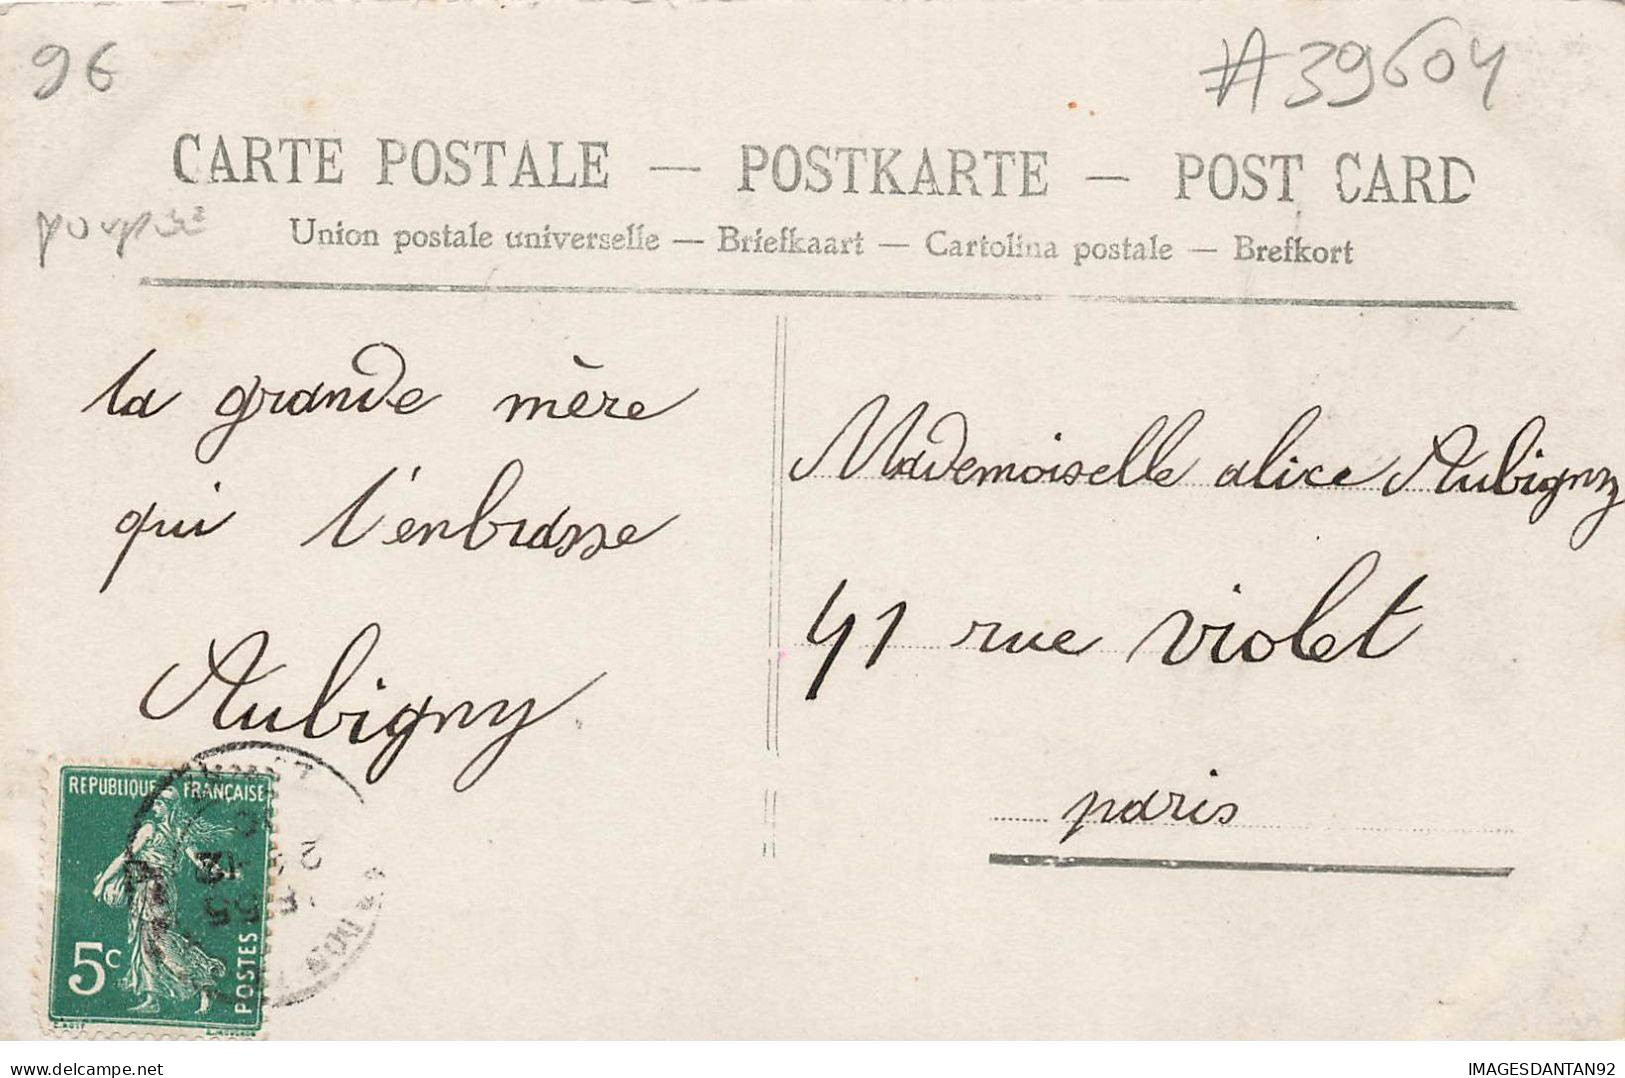 96
#39604
CARTE POSTALE — POSTKARTE — POST CARD
Union postale universelle — Briefkaart — Cartolina postale — Brefkort
la grande mère
qui t'enbrasse
Aubigny
Mademoiselle alice Aubigny
41 rue violet
paris
REPUBLIQUE FRANÇAISE
5c
POSTES
IMAGESDANTAN92